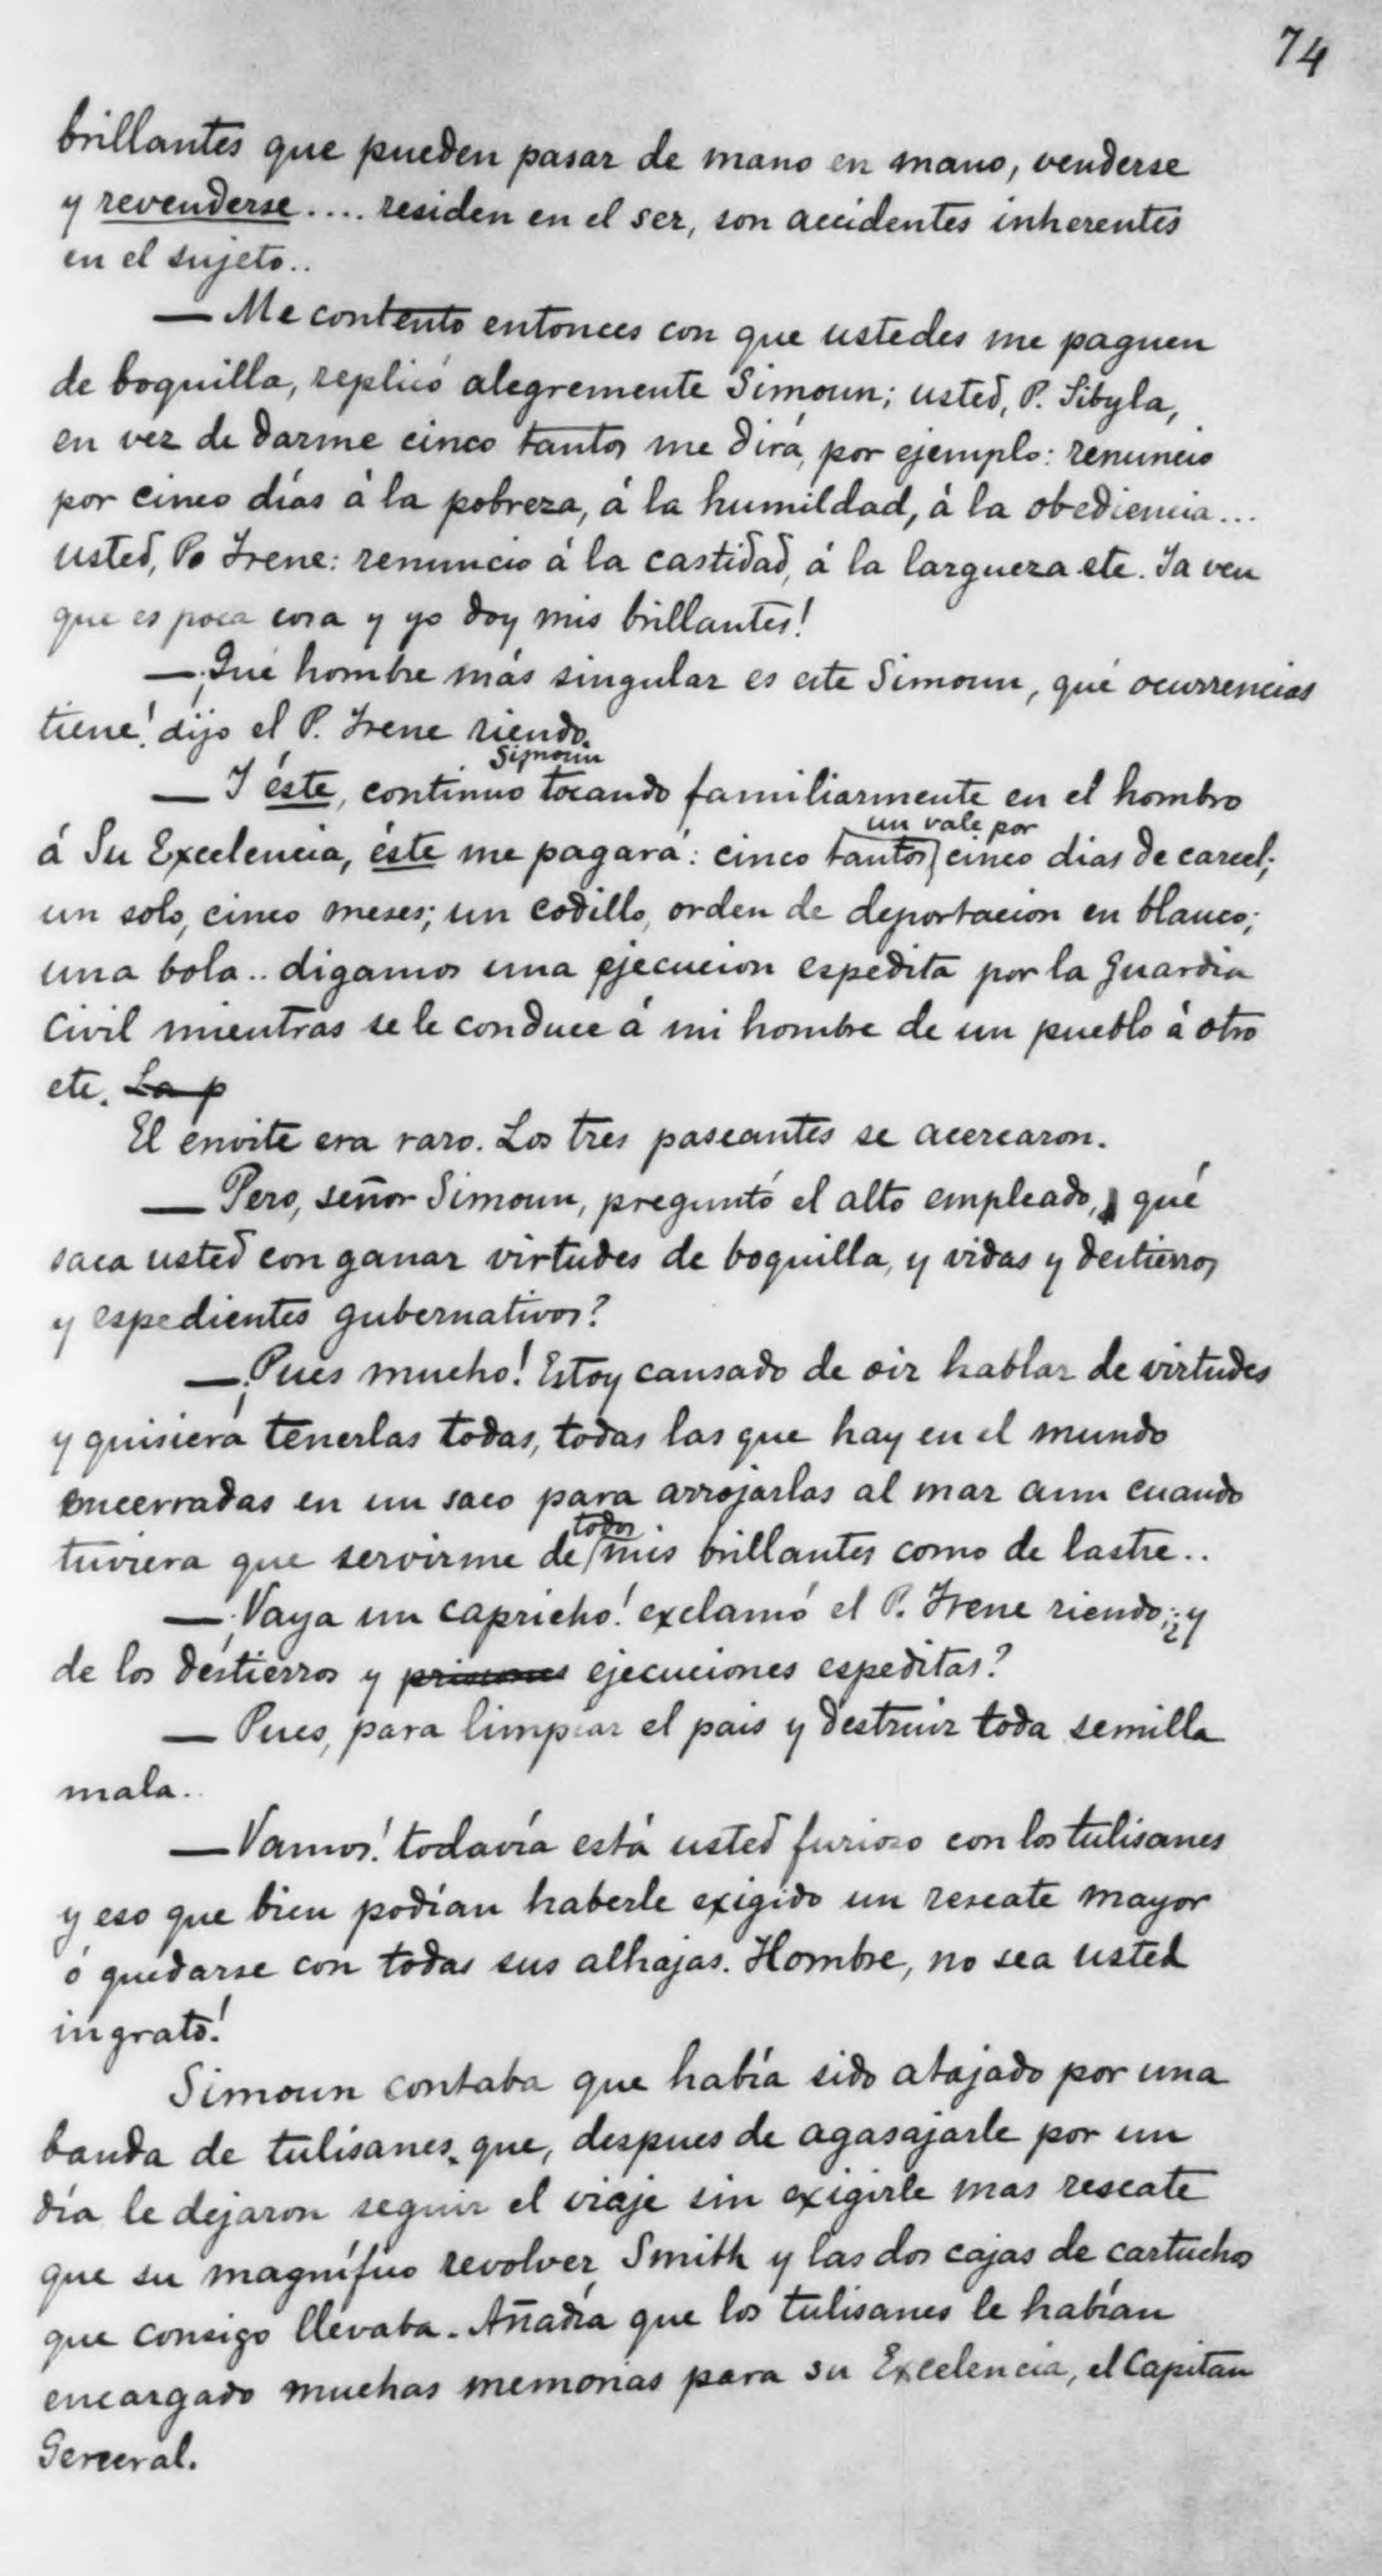 74
brillantes que pueden pasar de mano en mano, venderse
y revenderse.... residen en el ser, son accidentes inherentes
en el sujeto..
— Me contento entonces con que ustedes me paguen
de boquilla, replicó alegremente Simoun; usted, P. Sibyla,
en vez de darme cinco tantos me dirá, por ejemplo: renuncio
por cinco días á la pobreza, á la humildad, á la obediencia...
usted, P. Irene: renuncio á la castidad, á la largueza etc. Ya ven
que es poca cosa y yo doy mis brillantes!
— ¡Qué hombre más singular es este Simoun, qué ocurrencias
tiene! dijo el P. Irene riendo.
Simoun
— Y éste, continuo tocando familiarmente en el hombro
un vale por
á Su Excelencia, éste me pagará: cinco tantos, cinco dias de carcel;
un solo, cinco meses; un codillo, orden de deportacion en blanco;
una bola.. digamos una ejecucion espedita por la Guardia
Civil mientras se le conduce á mi hombre de un pueblo á otro
etc. La p
El envite era raro. Los tres paseantes se acercaron.
— Pero, señor Simoun, preguntó el alto empleado, qué
saca usted con ganar virtudes de boquilla, y vidas y destierros
y espedientes gubernativos?
— ¡Pues mucho! Estoy cansado de oir hablar de virtudes
y quisiera tenerlas todas, todas las que hay en el mundo
encerradas en un saco para arrojarlas al mar aun cuando
todos
tuviera que servirme de mis brillantes como de lastre..
— ¡Vaya un capricho! exclamó el P. Irene riendo; ¿y
de los destierros y prisiones ejecuciones espeditas?
— Pues, para limpiar el pais y destruir toda semilla
mala..
— Vamos! todavía está usted furioso con los tulisanes
y eso que bien podían haberle exigido un rescate mayor
ó quedarse con todas sus alhajas. Hombre, no sea usted
ingrato!
Simoun contaba que había sido atajado por una
banda de tulisanes que, despues de agasajarle por un
día le dejaron seguir el viaje sin exigirle mas rescate
que su magnífico revolver Smith y las dos cajas de cartuchos
que consigo llevaba. Añadía que los tulisanes le habían
encargado muchas memorias para su Excelencia, el Capitan
General.